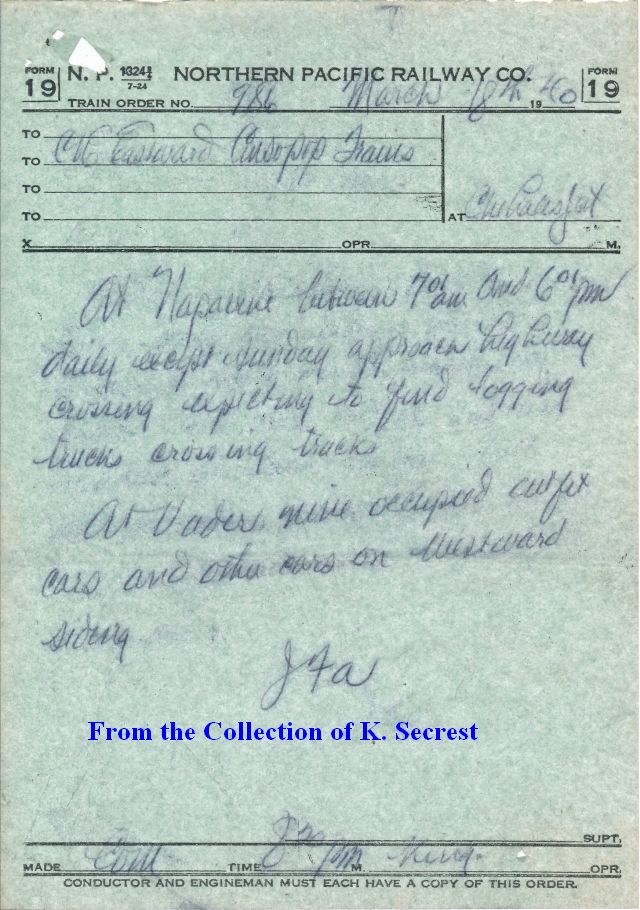 FORM 19
N. P. 1324½
7-24
NORTHERN PACIFIC RAILWAY CO.
FORM 19
TRAIN ORDER NO. 986 March 8th 1940
TO
TO C&E Eastward Trains
TO
TO
AT Chehalis Jct
X OPR. M.
At Napavine between 7 01 am and 6 01 pm
daily except Sunday approach highway
crossing expecting to find logging
trucks crossing tracks
At Vader nine occupied outfit
cars and other cars on Westward
siding
JFA
From the Collection of K. Secrest
SUPT.
MADE Com TIME PM M. King OPR.
CONDUCTOR AND ENGINEMAN MUST EACH HAVE A COPY OF THIS ORDER.